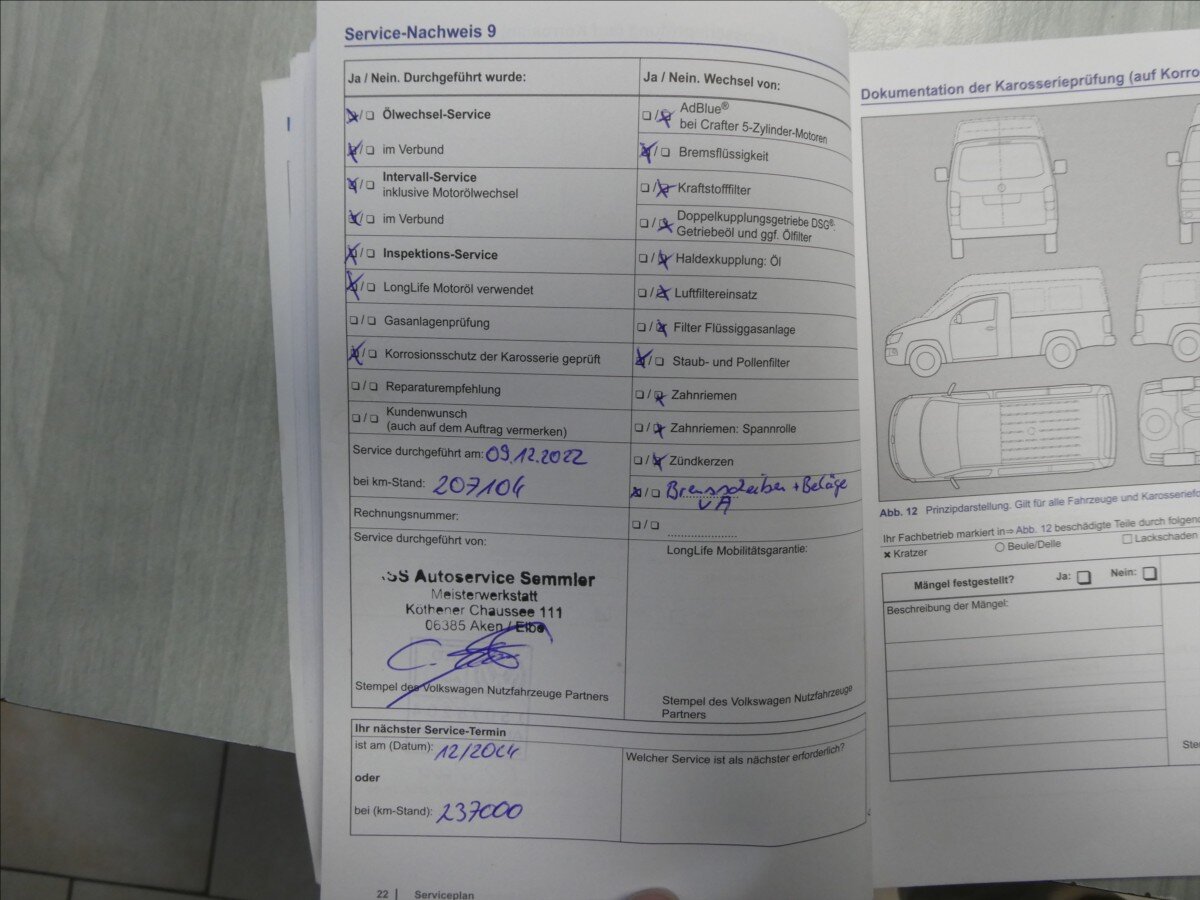 Service-Nachweis 9
Ja / Nein. Durchgeführt wurde:
Ölwechsel-Service
im Verbund
Intervall-Service
inklusive Motorölwechsel
im Verbund
Inspektions-Service
LongLife Motoröl verwendet
Gasanlagenprüfung
Korrosionsschutz der Karosserie geprüft
Reparaturempfehlung
Kundenwunsch
(auch auf dem Auftrag vermerken)
Service durchgeführt am: 09.12.2022
bei km-Stand: 207104
Rechnungsnummer:
Service durchgeführt von:
SS Autoservice Semmler
Meisterwerkstatt
Köthener Chaussee 111
06385 Aken / Elbe
Stempel des Volkswagen Nutzfahrzeuge Partners
Ja / Nein. Wechsel von:
AdBlue®
bei Crafter 5-Zylinder-Motoren
Bremsflüssigkeit
Kraftstofffilter
Doppelkupplungsgetriebe DSG®:
Getriebeöl und ggf. Ölfilter
Haldexkupplung: Öl
Luftfiltereinsatz
Filter Flüssiggasanlage
Staub- und Pollenfilter
Zahnriemen
Zahnriemen: Spannrolle
Zündkerzen
Bremsscheiben + Beläge
VA
LongLife Mobilitätsgarantie:
Stempel des Volkswagen Nutzfahrzeuge
Partners
Ihr nächster Service-Termin
ist am (Datum): 12/2024
oder
bei (km-Stand): 237000
Welcher Service ist als nächster erforderlich?
22 | Serviceplan
Dokumentation der Karosserieprüfung (auf Korro
Abb. 12 Prinzipdarstellung. Gilt für alle Fahrzeuge und Karosseriefo
Ihr Fachbetrieb markiert in⇒ Abb. 12 beschädigte Teile durch folgen
Kratzer
Beule/Delle
Lackschaden
Mängel festgestellt? Ja: Nein:
Beschreibung der Mängel:
Ste